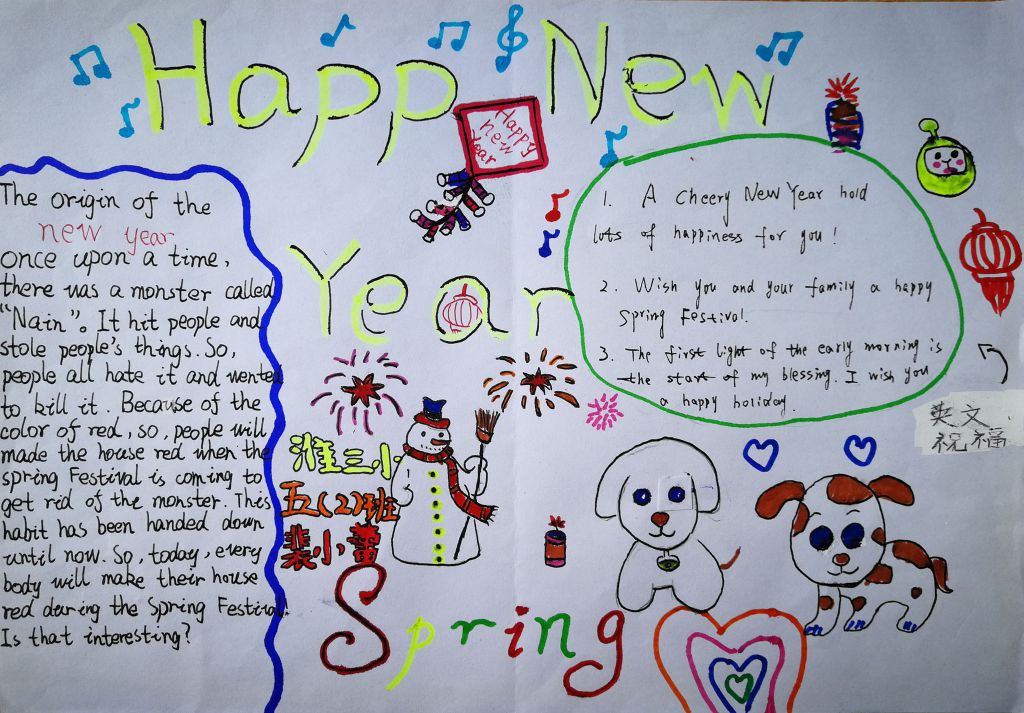 Happ New
Happy
new
Year
Year
The origin of the
new year
once upon a time,
there was a monster called
"Nain"。It hit people and
stole people's things. So,
people all hate it and wented
to kill it. Because of the
color of red, so, people will
made the house red when the
spring Festival is coming to
get rid of the monster. This
habit has been handed down
until now. So, today, every
body will make their house
red during the Spring Festival!
Is that interesting?
1. A cheery New Year hold
lots of happiness for you!
2. Wish you and your family a happy
Spring Festival.
3. The first light of the early morning is
the start of my blessing. I wish you
a happy holiday.
英文
祝福
淮三小
五(2)班
裴小蕾
Spring